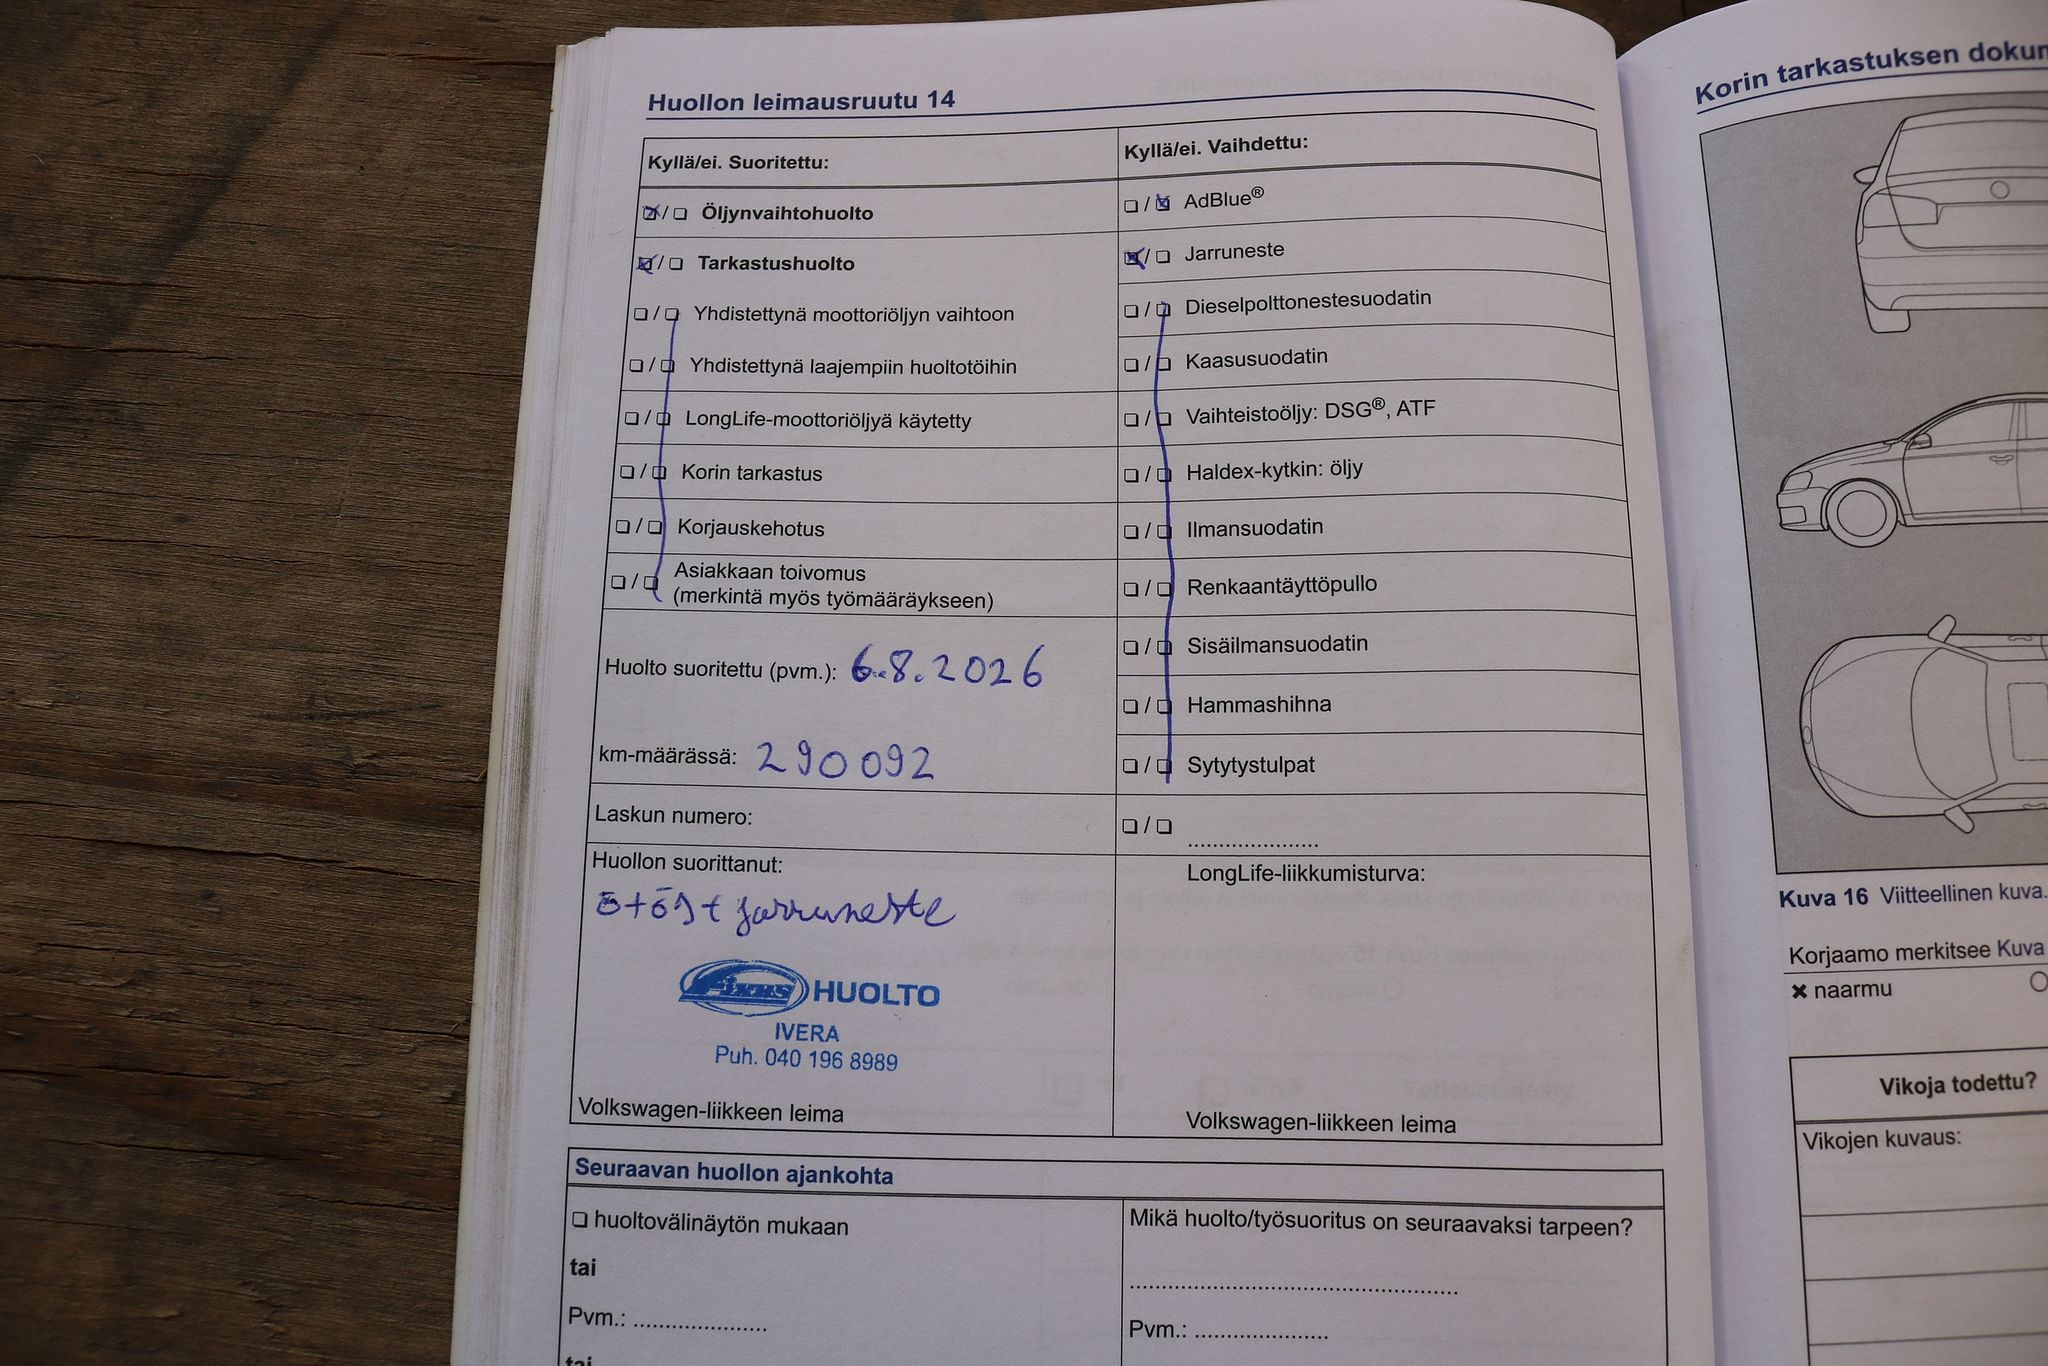 Huollon leimausruutu 14
Kyllä/ei. Suoritettu:
Öljynvaihtohuolto
Tarkastushuolto
Yhdistettynä moottoriöljyn vaihtoon
Yhdistettynä laajempiin huoltotöihin
LongLife-moottoriöljyä käytetty
Korin tarkastus
Korjauskehotus
Asiakkaan toivomus
(merkintä myös työmääräykseen)
Huolto suoritettu (pvm.): 6.8.2026
km-määrässä: 290092
Laskun numero:
Huollon suorittanut:
ö+ös+ jarruneste
HUOLTO
IVERA
Puh. 040 196 8989
Volkswagen-liikkeen leima
Kyllä/ei. Vaihdettu:
AdBlue®
Jarruneste
Dieselpolttonestesuodatin
Kaasusuodatin
Vaihteistoöljy: DSG®, ATF
Haldex-kytkin: öljy
Ilmansuodatin
Renkaantäyttöpullo
Sisäilmansuodatin
Hammashihna
Sytytystulpat
LongLife-liikkumisturva:
Volkswagen-liikkeen leima
Seuraavan huollon ajankohta
huoltovälinäytön mukaan
tai
Pvm.:
tai
Mikä huolto/työsuoritus on seuraavaksi tarpeen?
Pvm.:
Korin tarkastuksen
Kuva 16 Viitteellinen kuva.
Korjaamo merkitsee Kuva
naarmu
Vikoja todettu?
Vikojen kuvaus: